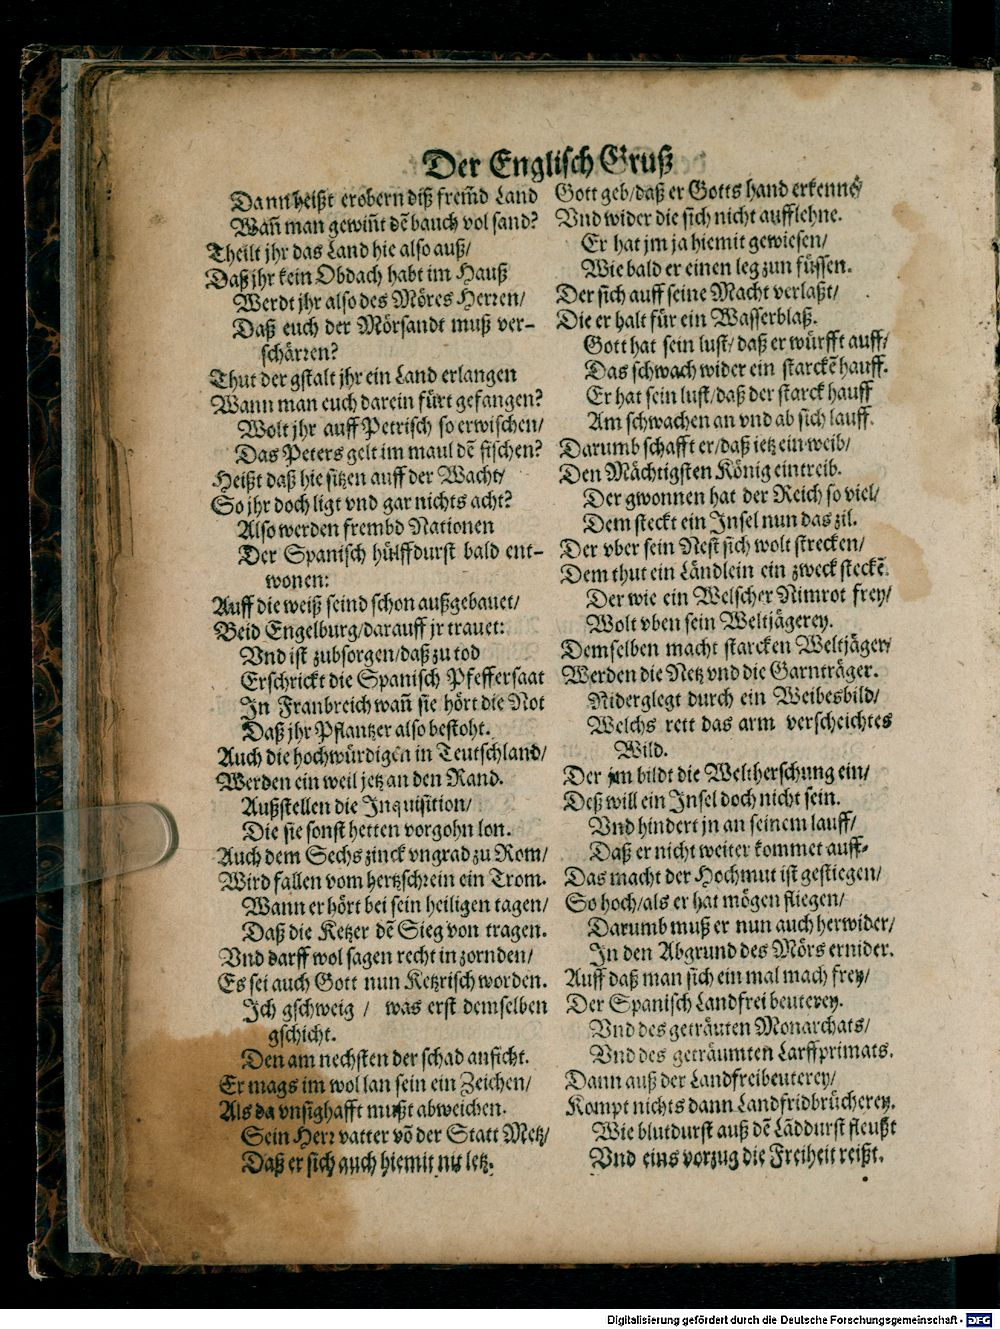 Der Englisch Gruß
Dann heißt erobern diß frem̃d Land
Wañ man gewiñt dẽ bauch vol sand?
Theilt jhr das Land hie also auß/
Daß jhr kein Obdach habt im Hauß
Werdt jhr also des Möres Herren/
Daß euch der Mörsandt muß ver-
schärren?
Thut der gstalt jhr ein Land erlangen
Wann man euch darein fürt gefangen?
Wolt jhr auff Petrisch so erwischen/
Das Peters gelt im maul dẽ fischen?
Heißt daß hie sitzen auff der Wacht/
So jhr doch ligt vnd gar nichts acht?
Also werden frembd Nationen
Der Spanisch hülffdurst bald ent-
wonen:
Auff die weiß seind schon außgebauet/
Beid Engelburg/darauff jr trauet:
Vnd ist zubsorgen/daß zu tod
Erschrickt die Spanisch Pfeffersaat
In Franbreich wañ sie hört die Not
Daß jhr Pflantzer also bestoht.
Auch die hochwürdigen in Teutschland/
Werden ein weil jetz an den Rand.
Außstellen die Inquisition/
Die sie sonst hetten vorgohn lon.
Auch dem Sechs zinck vngrad zu Rom/
Wird fallen vom hertzschrein ein Trom.
Wann er hört bei sein heiligen tagen/
Daß die Ketzer dẽ Sieg von tragen.
Vnd darff wol sagen recht in zornden/
Es sei auch Gott nun Ketzrisch worden.
Ich gschweig / was erst demselben
gschicht.
Den am nechsten der schad anficht.
Er mags im wol lan sein ein Zeichen/
Als da vnsighafft mußt abweichen.
Sein Herr vatter võ der Statt Metz/
Daß er sich auch hiemit nit letz.
Gott geb/daß er Gotts hand erkenne/
Vnd wider die sich nicht aufflehne.
Er hat jm ja hiemit gewiesen/
Wie bald er einen leg zun füssen.
Der sich auff seine Macht verlaßt/
Die er halt für ein Wasserblaß.
Gott hat sein lust/ daß er würfft auff/
Das schwach wider ein starckẽ hauff.
Er hat sein lust/daß der starck hauff
Am schwachen an vnd ab sich lauff.
Darumb schafft er/daß ietz ein weib/
Den Mächtigsten König eintreib.
Der gwonnen hat der Reich so viel/
Dem steckt ein Insel nun das zil.
Der vber sein Nest sich wolt strecken/
Dem thut ein Ländlein ein zweck steckẽ.
Der wie ein Welscher Nimrot frey/
Wolt vben sein Weltjägerey.
Demselben macht starcken Weltjäger/
Werden die Netz vnd die Garnträger.
Niderglegt durch ein Weibesbild/
Welchs rett das arm verscheichtes
Wild.
Der jm bildt die Weltherschung ein/
Deß will ein Insel doch nicht sein.
Vnd hindert jn an seinem lauff/
Daß er nicht weiter kommet auff.
Das macht der Hochmut ist gestiegen/
So hoch/als er hat mögen fliegen/
Darumb muß er nun auch herwider/
In den Abgrund des Mörs ernider.
Auff daß man sich ein mal mach frey/
Der Spanisch Landfreibeuterey.
Vnd des geträuten Monarchats/
Vnd des geträumten Larffprimats.
Dann auß der Landfreibeuterey/
Kompt nichts dann Landfridbrücherey.
Wie blutdurst auß dẽ Lãddurst fleußt
Vnd eins vorzug die Freiheit reißt.
Digitalisierung gefördert durch die Deutsche Forschungsgemeinschaft - DFG